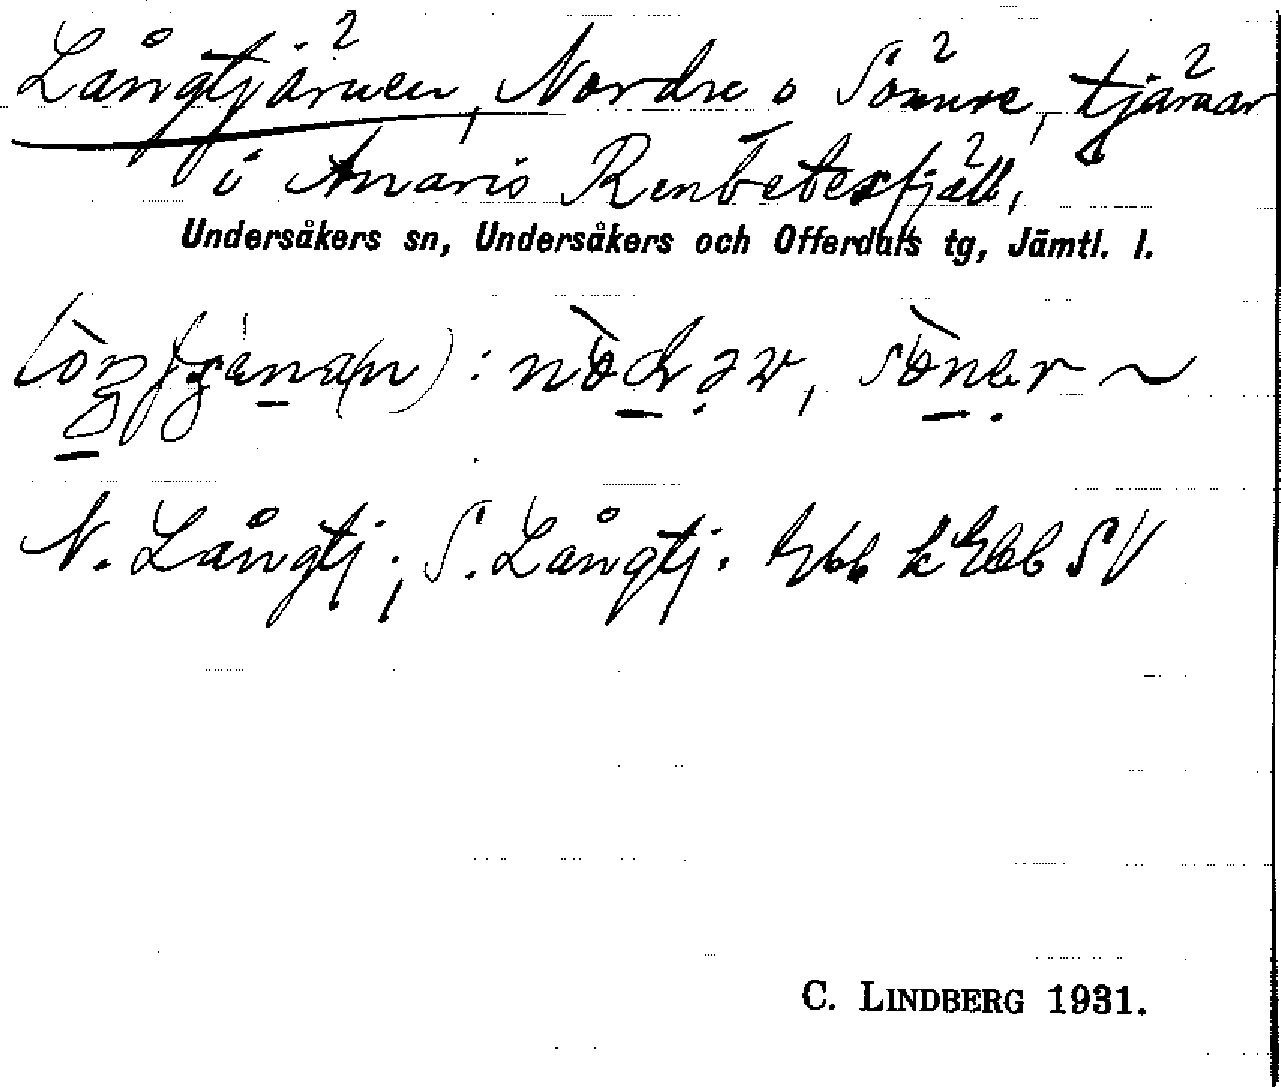 Långtjärnen, Nordre o Sönnre, tjärnar
i Anaris Renbetesfjäll,
Undersåkers sn, Undersåkers och Offerdals tg, Jämtl. l.
N. Långtj.; S. Långtj. Ebl k Ebl SV
C. LINDBERG 1931.